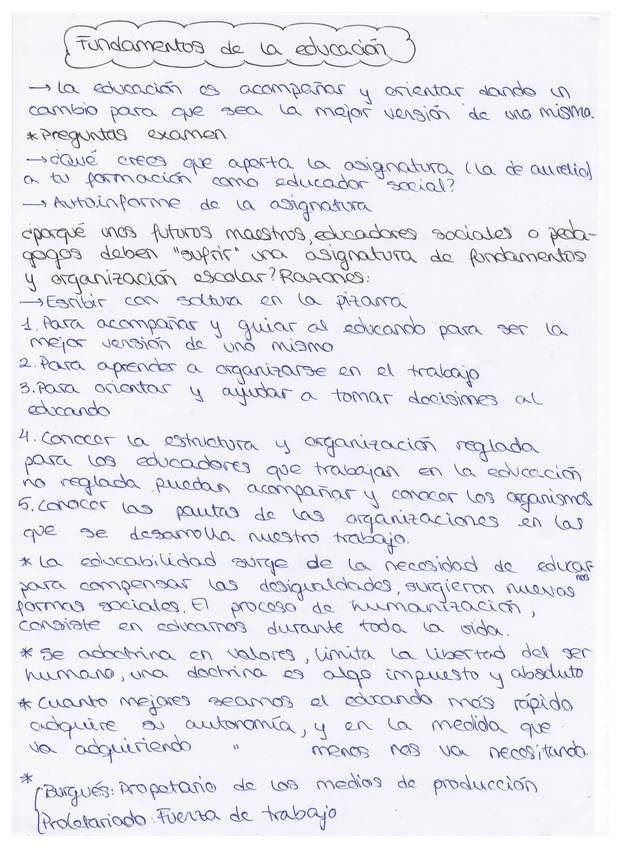 Fundamentos de la educación
→ La educación es acompañar y orientar dando un
cambio para que sea la mejor versión de uno mismo.
*Preguntas examen
→ ¿Qué crees que aporta la asignatura (la de aurelio)
a tu formación como educador social?
→ Autoinforme de la asignatura
¿porqué unos futuros maestros, educadores sociales o peda-
gogos deben "sufrir" una asignatura de fundamentos
y organización escolar? Razones:
→ Escribir con soltura en la pizarra
1. Para acompañar y guiar al educando para ser la
mejor versión de uno mismo
2. Para aprender a organizarse en el trabajo
3. Para orientar y ayudar a tomar decisiones al
educando
4. Conocer la estructura y organización reglada
para los educadores que trabajan en la educación
no reglada puedan acompañar y conocer los organismos
5. Conocer las pautas de las organizaciones en las
que se desarrolla nuestro trabajo.
* La educabilidad surge de la necesidad de educar
nos
para compensar las desigualdades, surgieron nuevas
formas sociales. El proceso de humanización,
consiste en educarnos durante toda la vida.
* Se adoctrina en valores, limita la libertad del ser
humano, una doctrina es algo impuesto y absoluto
* Cuanto mejores seamos el educando más rápido
adquire su autonomía, y en la medida que
va adquiriendo " menos nos va necesitando.
*
Burgués: Propetario de los medios de producción
Proletariado: Fuerza de trabajo